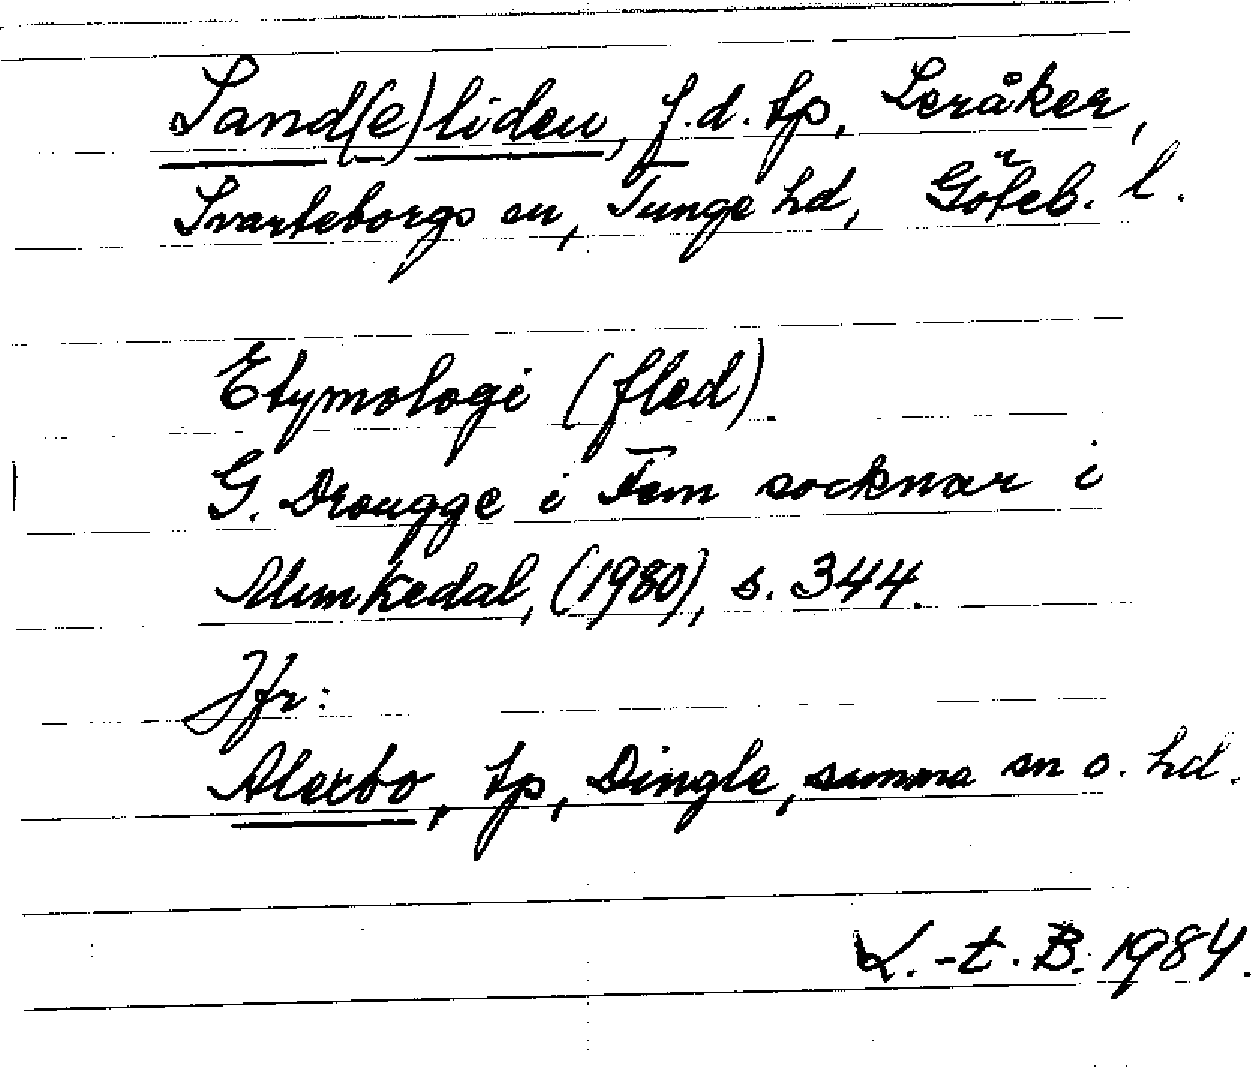 Sand(e)liden, f.d. tp, Leråker,
Svarteborgs sn, Tunge hd, Göteb. l.
Etymologi (fled).
G. Drougge i Fem socknar i
Munkedal, (1980), s. 344.
Jfr:
Alexbo, tp, Dingle, samma sn o. hd.
K.-t. B. 1984.